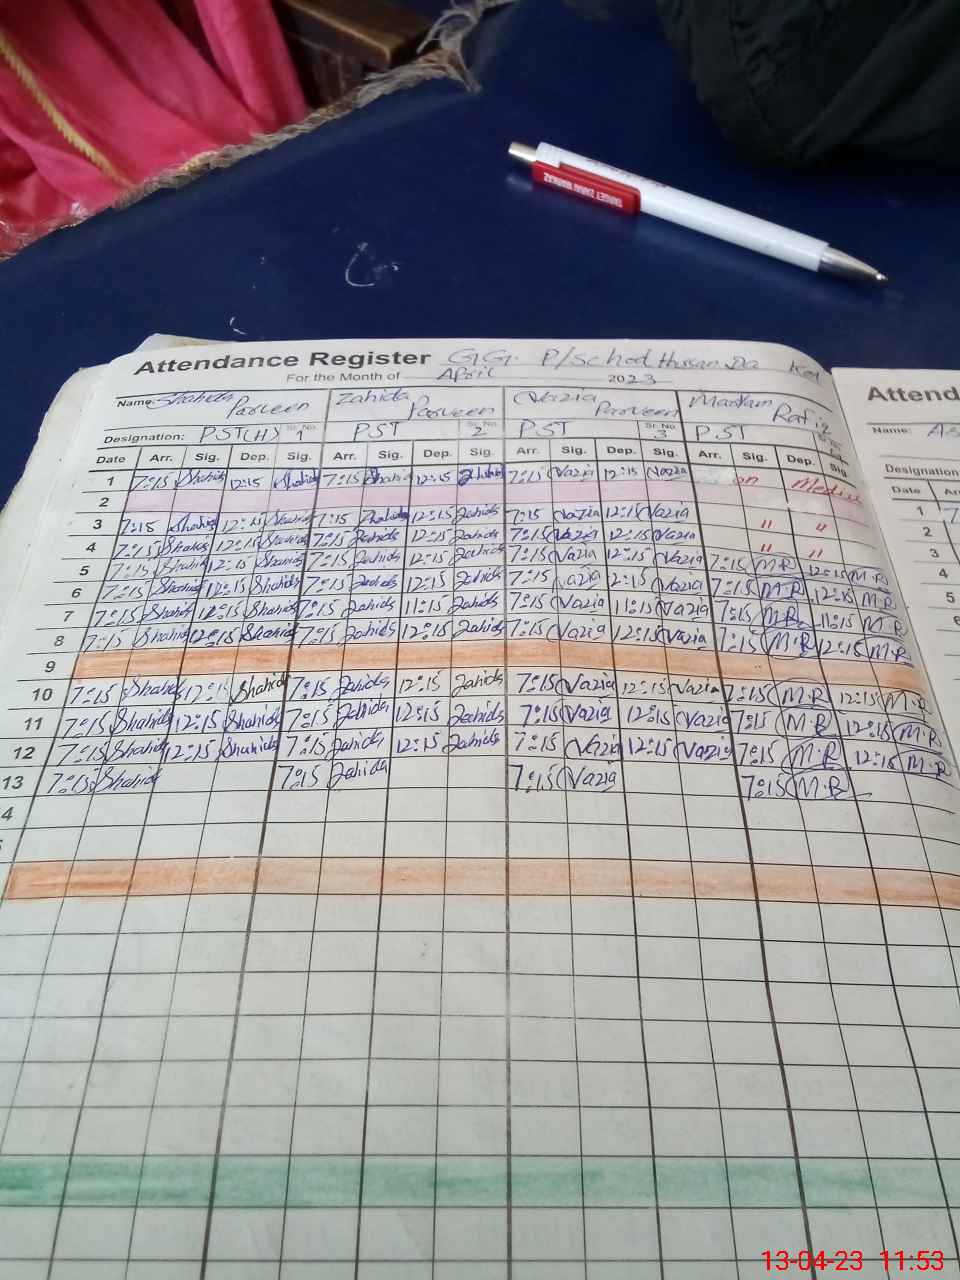 TARGET ZARAI MARKAZ
Attendance Register G.G. P/School Hussan Da Kot
For the Month of April 2023
Name: Shahida Parveen Zahida Parveen Nazia Parveen Mariam Rafiq
Designation: PST(H) Sr. No. 1 PST 2 PST Sr. No. 3 PST
Date Arr. Sig. Dep. Sig. Arr. Sig. Dep. Sig. Arr. Sig. Dep. Sig. Arr. Sig. Dep. Sig.
1 7:15 Shahida 12:15 Shahida 7:15 Zahida 12:15 Zahida 7:15 Nazia 12:15 Nazia on
2
3 7:15 Shahida 12:15 Shahida 7:15 Zahida 12:15 Zahida 7:15 Nazia 12:15 Nazia " "
4 7:15 Shahida 12:15 Shahida 7:15 Zahida 12:15 Zahida 7:15 Nazia 12:15 Nazia " "
5 7:15 Shahida 12:15 Shahida 7:15 Zahida 12:15 Zahida 7:15 Nazia 12:15 Nazia 7:15 M.R 12:15 M.R
6 7:15 Shahida 12:15 Shahida 7:15 Zahida 12:15 Zahida 7:15 Nazia 12:15 Nazia 7:15 M.R 12:15 M.R
7 7:15 Shahida Shahida 7:15 Zahida 11:15 Zahida 7:15 Nazia 11:15 Nazia 7:15 M.R 11:15 M.R
8 7:15 Shahida 12:15 Shahida 7:15 Zahida 12:15 Zahida 7:15 Nazia 12:15 Nazia 7:15 M.R 12:15 M.R
9
10 7:15 Shahida 12:15 Shahida 7:15 Zahida 12:15 Zahida 7:15 Nazia 12:15 Nazia 7:15 M.R 12:15 M.R
11 7:15 Shahida 12:15 Shahida 7:15 Zahida 12:15 Zahida 7:15 Nazia 12:15 Nazia 7:15 M.R 12:15 M.R
12 7:15 Shahida 12:15 Shahida 7:15 Zahida 12:15 Zahida 7:15 Nazia 12:15 Nazia 7:15 M.R 12:15 M.R
13 7:15 Shahida 7:15 Zahida 7:15 Nazia 7:15 M.R
4
Attend
Name: As
Designation
Date Ar
1 7
2
3
4
5
6
13-04-23 11:53